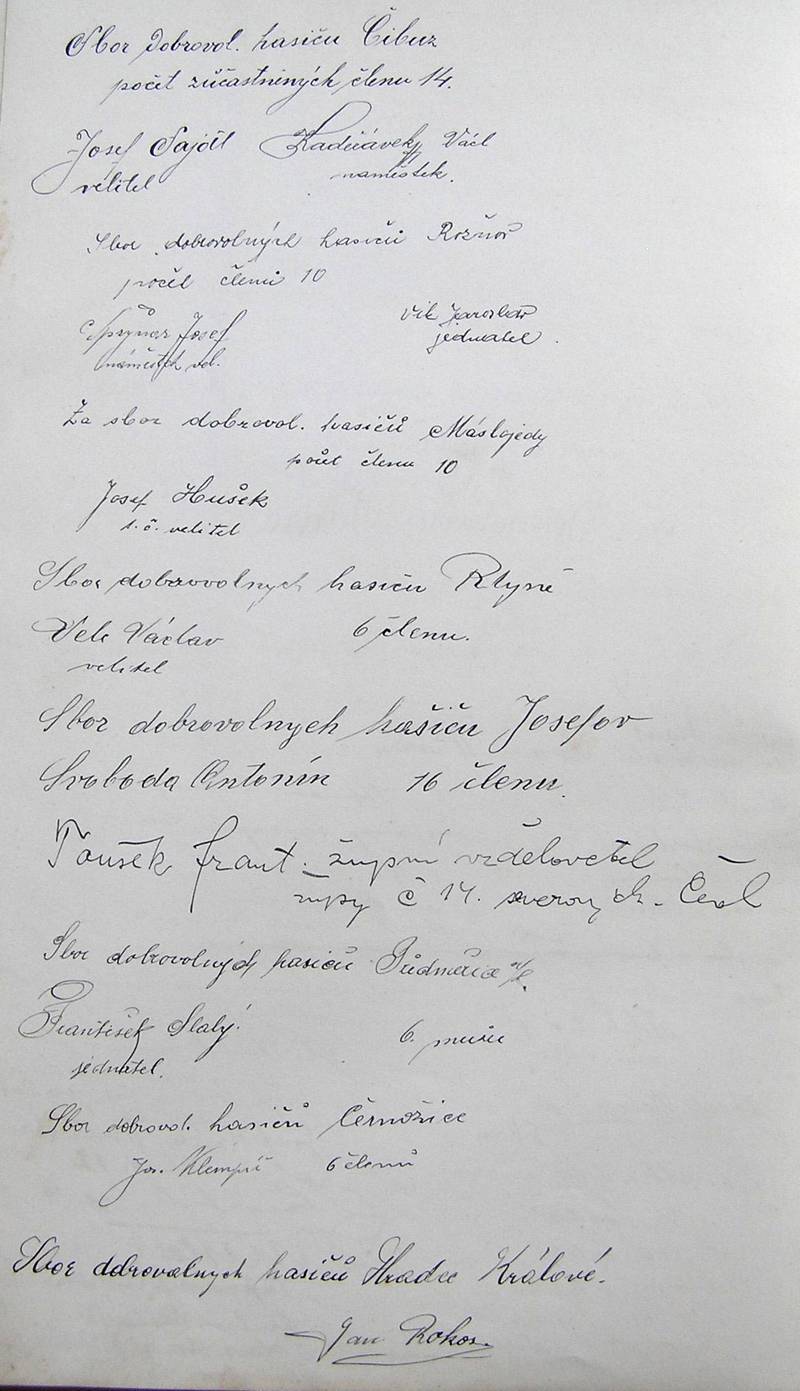 Sbor Dobrovol. hasičů Čibuz
počet zúčastněných členu 14.
Josef Sajdl Václ
velitel náměstek.
Sbor dobrovolných hasičů Rožnov
počet členů 10
Špryňar Josef Vik Jaroslav
náměstek vel. jednatel.
Za sbor dobrovol. hasičů Máslojedy
počet členu 10
Josef Hušek
1. č. velitel
Sbor dobrovolnych hasiču Rtyně
Václav 6 členu.
velitel
Sbor dobrovolnych hasiču Josefov
Svoboda Antonín 16 členu.
Toušek Frant. župní vzdělovatel
župy č 14. severových. Čech
Sbor dobrovolných hasičů n/L.
František Slalý 6. mužů
jednatel.
Sbor dobrovol. hasičů Černožice
Jos. 6 členů
Sbor ddrovolnych hasičů Hradec Králové.
Jan Rokos.